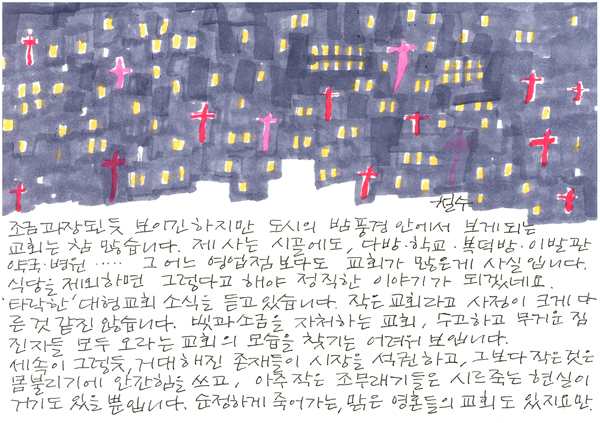 철수
조금 과장된듯 보이긴 하지만 도시의 밤풍경 안에서 보게 되는
교회는 참 많습니다. 제 사는 시골에도, 다방·학교·복덕방·이발관
약국·병원 ····· 그 어느 영업점보다도 교회가 많은게 사실입니다.
식당을 제외하면 그렇다고 해야 정직한 이야기가 되겠네요.
'타락한' 대형교회 소식을 듣고 있습니다. 작은 교회라고 사정이 크게 다
른것 같진 않습니다. 빛과소금을 자처하는 교회, 수고하고 무거운 짐
진자들 모두 오라는 교회의 모습을 찾기는 어려워 보입니다.
세속이 그렇듯, 거대해진 존재들이 시장을 석권하고, 그보다 작은것은
몸불리기에 안간힘을 쓰고, 아주 작은 조무래기들은 시르죽는 현실이
거기도 있을 뿐입니다. 순정하게 죽어가는, 맑은 영혼들의 교회도 있지요만.